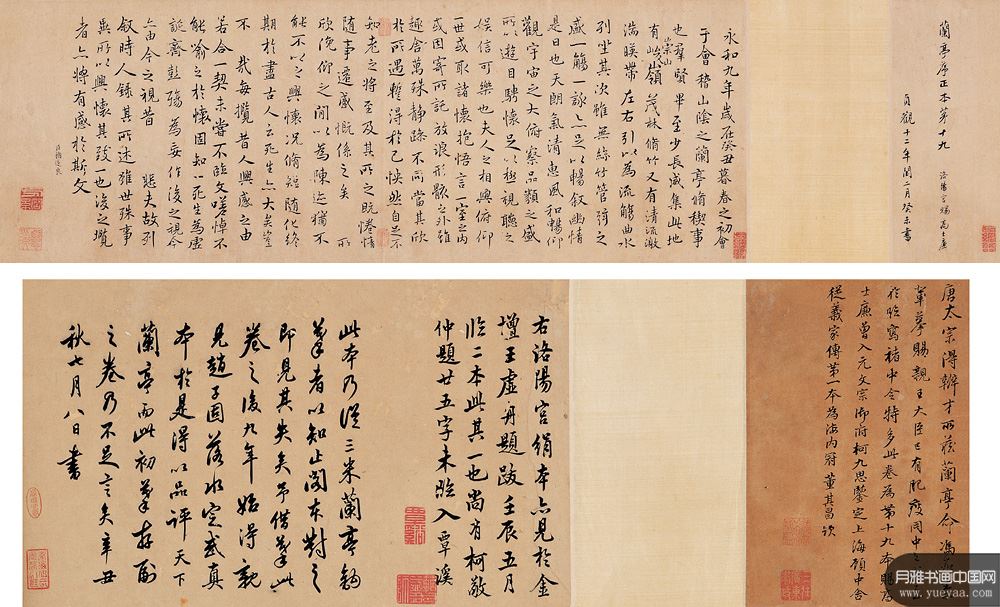 蘭亭序正本第十九 洛陽宮賜高士廉
貞觀十二年閏二月癸未書
永和九年歲在癸丑暮春之初會
于會稽山陰之蘭亭脩稧事
也羣賢畢至少長咸集此地
有崇山峻嶺茂林脩竹又有清流激
湍暎帶左右引以為流觴曲水
列坐其次雖無絲竹管弦之
盛一觴一詠亦足以暢叙幽情
是日也天朗氣清惠風和暢仰
觀宇宙之大俯察品類之盛
所以遊目騁懷足以極視聽之
娛信可樂也夫人之相與俯仰
一世或取諸懷抱悟言一室之內
或因寄所託放浪形骸之外雖
趣舍萬殊靜躁不同當其欣
於所遇蹔得於己怏然自足不
知老之將至及其所之既惓情
隨事遷感慨係之矣 所
欣俛仰之間以為陳迹猶不
能不以之興懷況脩短隨化終
期於盡古人云死生亦大矣豈
不 哉每攬昔人興感之由
若合一契未嘗不臨文嗟悼不
能喻之於懷固知一死生為虛
誕齊彭殤為妄作後之視今
亦由今之視昔 悲夫故列
叙時人錄其所述雖世殊事
異所以興懷其致一也後之攬
者亦將有感於斯文
臣褚遂良
唐太宗得辨才所藏蘭亭命馮
輩摹賜親王大臣已有肥瘦同中之
於臨寫褚中令特多此卷為第十九本賜高
士廉曾入元文宗御府柯九思鑒定上海顧中舍
從義家傳第一本為海內冠 董其昌
右洛陽宮絹本亦見於金
壇王虛舟題跋壬辰五月
臨二本此其一也尚有柯敬
仲題廿五字未臨入 覃溪
此本乃從三米蘭亭鉤
摹者以知止閣本對之
即見其失矣予借摹此
卷之後九年始得親
見趙子固落水定武真
本於是得以品評天下
蘭亭而此初摹存副
之卷乃不足言矣辛丑
秋七月八日書
月雅书画中国网
www.yueyaa.com